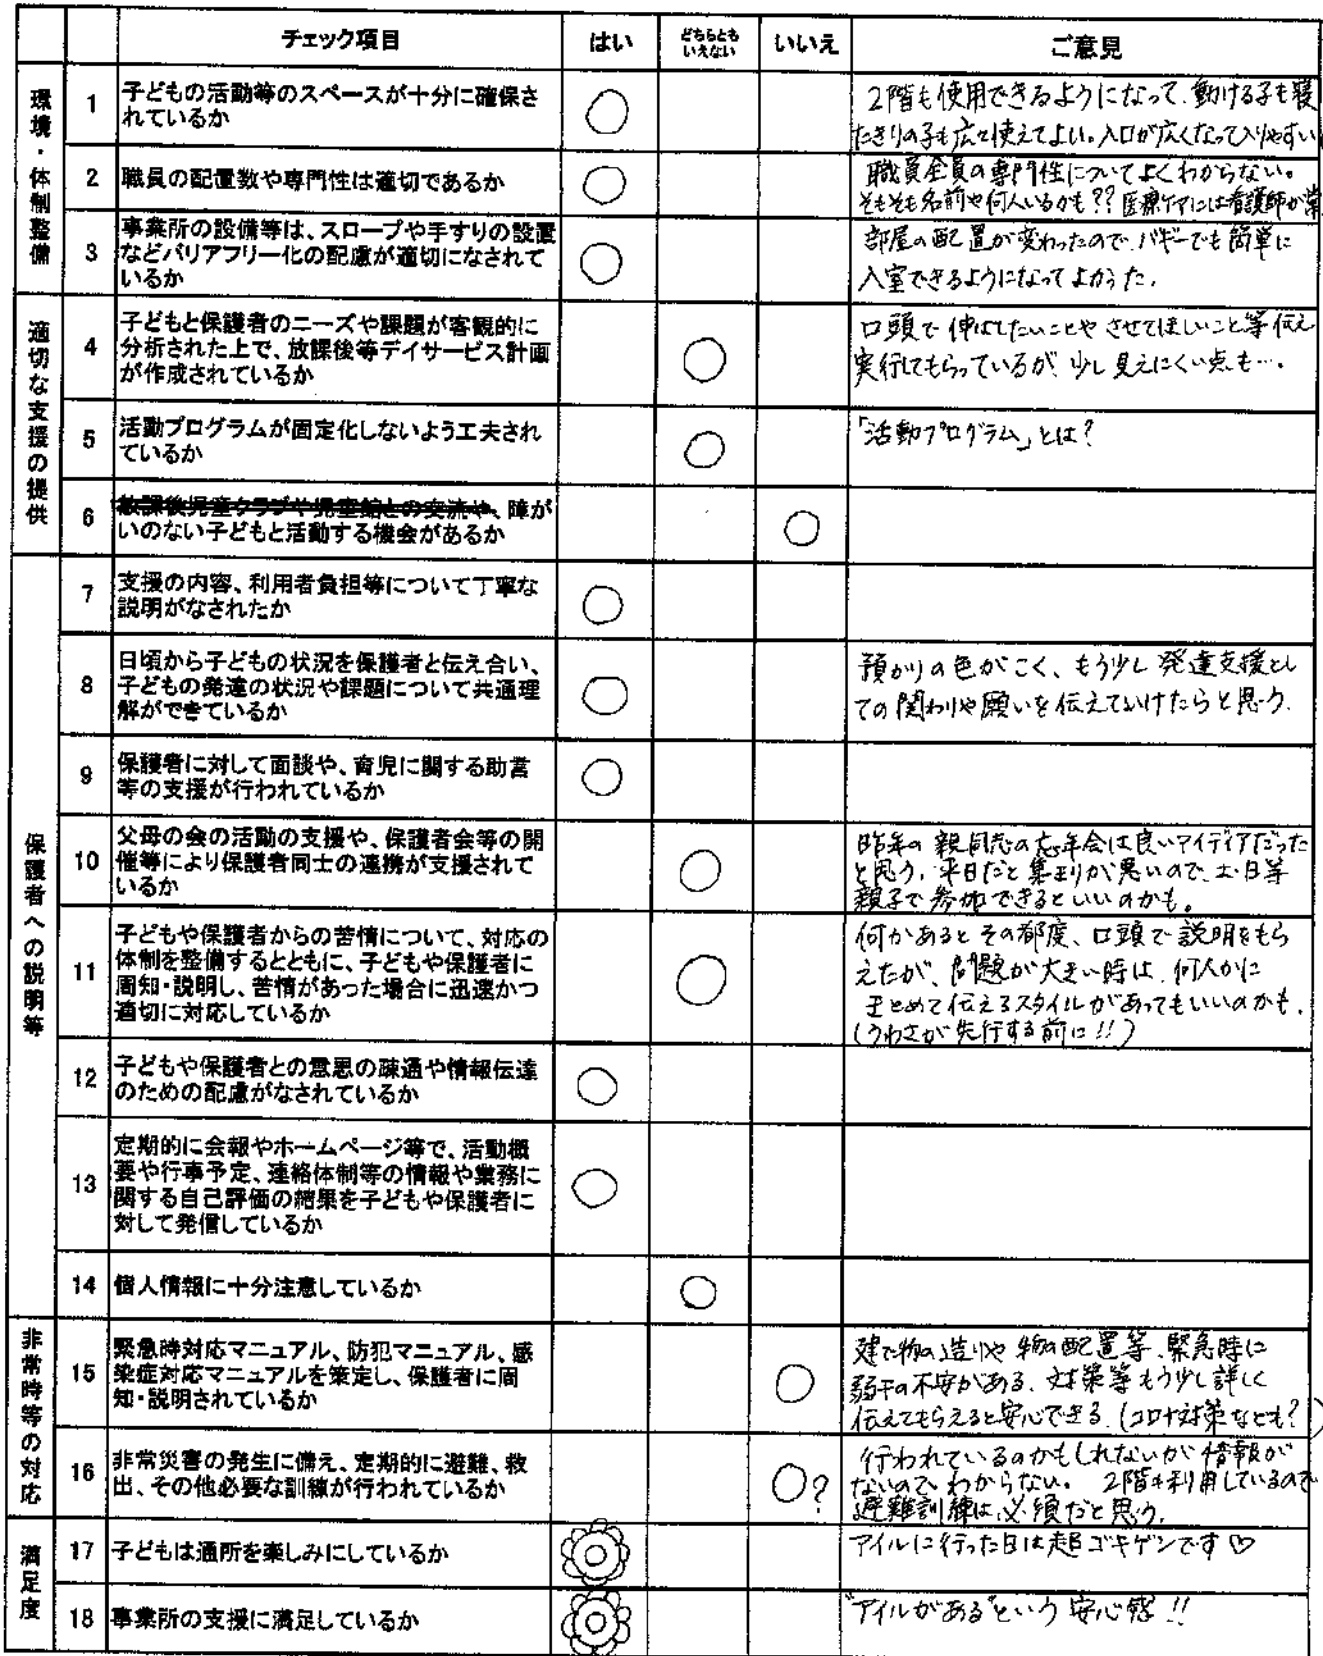 チェック項目 はい どちらとも いいえ ご意見
いえない
環境・体制整備
1 子どもの活動等のスペースが十分に確保さ
れているか
○
2階も使用できるようになって、動ける子も寝
たきりの子も広く使えてよい。入口が広くなって入りやすい
2 職員の配置数や専門性は適切であるか
○
職員全員の専門性についてよくわからない。
そもそも名前や何人いるかも?? 医療ケアには看護師が常
3 事業所の設備等は、スロープや手すりの設置
などバリアフリー化の配慮が適切になされて
いるか
○
部屋の配置が変わったので、バギーでも簡単に
入室できるようになってよかった。
適切な支援の提供
4 子どもと保護者のニーズや課題が客観的に
分析された上で、放課後等デイサービス計画
が作成されているか
○
口頭で伸ばしたいことやさせてほしいこと等伝え
実行してもらっているが、少し見えにくい点も…。
5 活動プログラムが固定化しないよう工夫され
ているか
○
「活動プログラム」とは?
6 放課後児童クラブや児童館との交流や、障が
いのない子どもと活動する機会があるか
○
保護者への説明等
7 支援の内容、利用者負担等について丁寧な
説明がなされたか
○
8 日頃から子どもの状況を保護者と伝え合い、
子どもの発達の状況や課題について共通理
解ができているか
○
預かりの色がこく、もう少し発達支援とし
ての関わりや願いを伝えていけたらと思う。
9 保護者に対して面談や、育児に関する助言
等の支援が行われているか
○
10 父母の会の活動の支援や、保護者会等の開
催等により保護者同士の連携が支援されて
いるか
○
昨年の親同志の忘年会は良いアイディアだった
と思う。平日だと集まりが悪いので、土・日等
親子で参加できるといいのかも。
11 子どもや保護者からの苦情について、対応の
体制を整備するとともに、子どもや保護者に
周知・説明し、苦情があった場合に迅速かつ
適切に対応しているか
○
何かあるとその都度、口頭で説明をもら
えたが、問題が大きい時は、何人かに
まとめて伝えるスタイルがあってもいいのかも。
(うわさが先行する前に!!)
12 子どもや保護者との意思の疎通や情報伝達
のための配慮がなされているか
○
13 定期的に会報やホームページ等で、活動概
要や行事予定、連絡体制等の情報や業務に
関する自己評価の結果を子どもや保護者に
対して発信しているか
○
14 個人情報に十分注意しているか
○
非常時等の対応
15 緊急時対応マニュアル、防犯マニュアル、感
染症対応マニュアルを策定し、保護者に周
知・説明されているか
○
建て物の造りや物の配置等、緊急時に
若干の不安がある。対策等もう少し詳しく
伝えてもらえると安心できる。(コロナ対策なども?)
16 非常災害の発生に備え、定期的に避難、救
出、その他必要な訓練が行われているか
○?
行われているのかもしれないが情報が
ないので、わからない。 2階も利用しているので
避難訓練は、必須だと思う。
満足度
17 子どもは通所を楽しみにしているか
アイルに行った日は超ゴキゲンです♡
18 事業所の支援に満足しているか
"アイルがある"という安心感!!